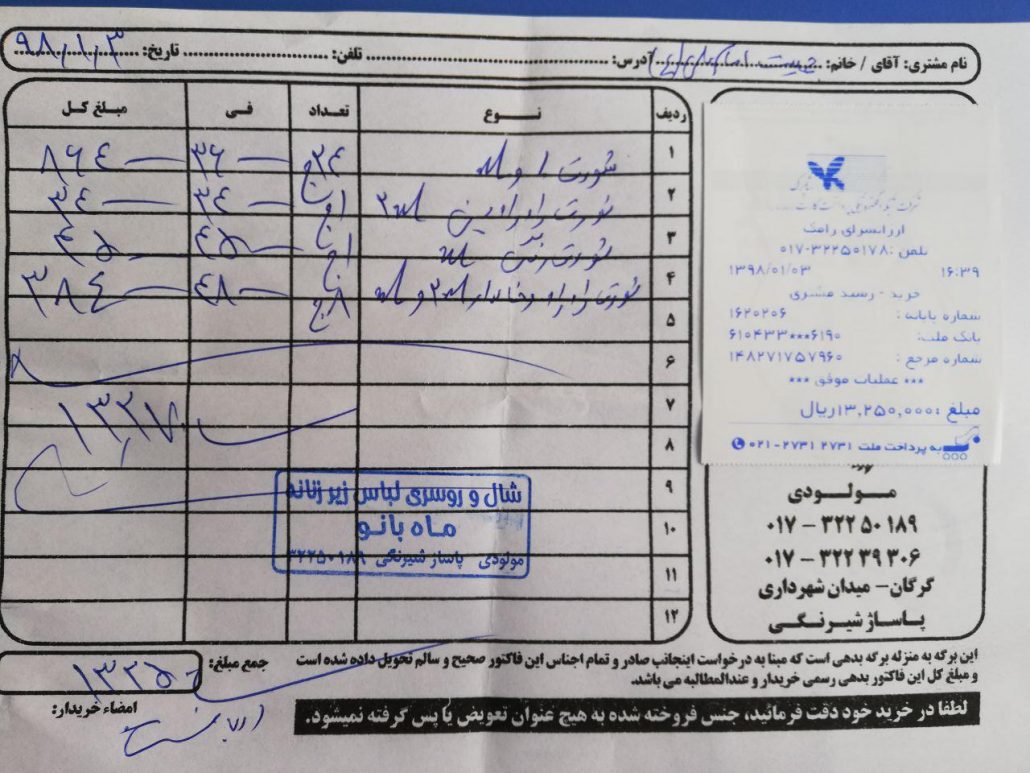 نام مشتری: آقای / خانم: ........ آدرس: ........ تلفن: ........ تاریخ: ۹۸,۱,۳
ردیف نوع تعداد فی مبلغ کل
۱ شورت ۲۴ج ۳۶— ۸۶۴—
۲ شورت ۱ج ۳۴— ۳۴—
۳ شورت ۱ج ۴۵— ۴۵—
۴ شورت ۸ج ۴۸— ۳۸۴—
۵
۶
۷ ۱۳,۲۷۰
۸
۹
۱۰
۱۱
۱۲
شال و روسری لباس زیر زنانه
ماه بانو
مولودی پاساژ شیرنگی ۳۲۲۵۰۱۸۹
ارزانسرای رامک
تلفن: ۰۱۷-۳۲۲۵۰۱۷۸
۱۶:۳۹ ۱۳۹۸/۰۱/۰۳
خرید - رسید مشتری
شماره پایانه: ۱۶۲۰۲۰۶
بانک ملت: ۶۱۰۴۳۳***۶۱۹۰
شماره مرجع: ۱۴۸۲۷۱۷۵۷۹۶۰
*** عملیات موفق ***
مبلغ: ۱۳,۲۵۰,۰۰۰ریال
به پرداخت ملت ۲۷۳۱ ۲۷۳۱-۰۲۱
مولودی
۰۱۷ – ۳۲۲ ۵۰ ۱۸۹
۰۱۷ – ۳۲۲ ۳۹ ۳۰۶
گرگان- میدان شهرداری
پاساژ شیرنگی
این برگه به منزله برگه بدهی است که مبنا به درخواست اینجانب صادر و تمام اجناس این فاکتور صحیح و سالم تحویل داده شده است
و مبلغ کل این فاکتور بدهی رسمی خریدار و عندالمطالبه می باشد.
جمع مبلغ: ۱۳۲۵۰
امضاء خریدار:
لطفا در خرید خود دقت فرمائید، جنس فروخته شده به هیچ عنوان تعویض یا پس گرفته نمیشود.